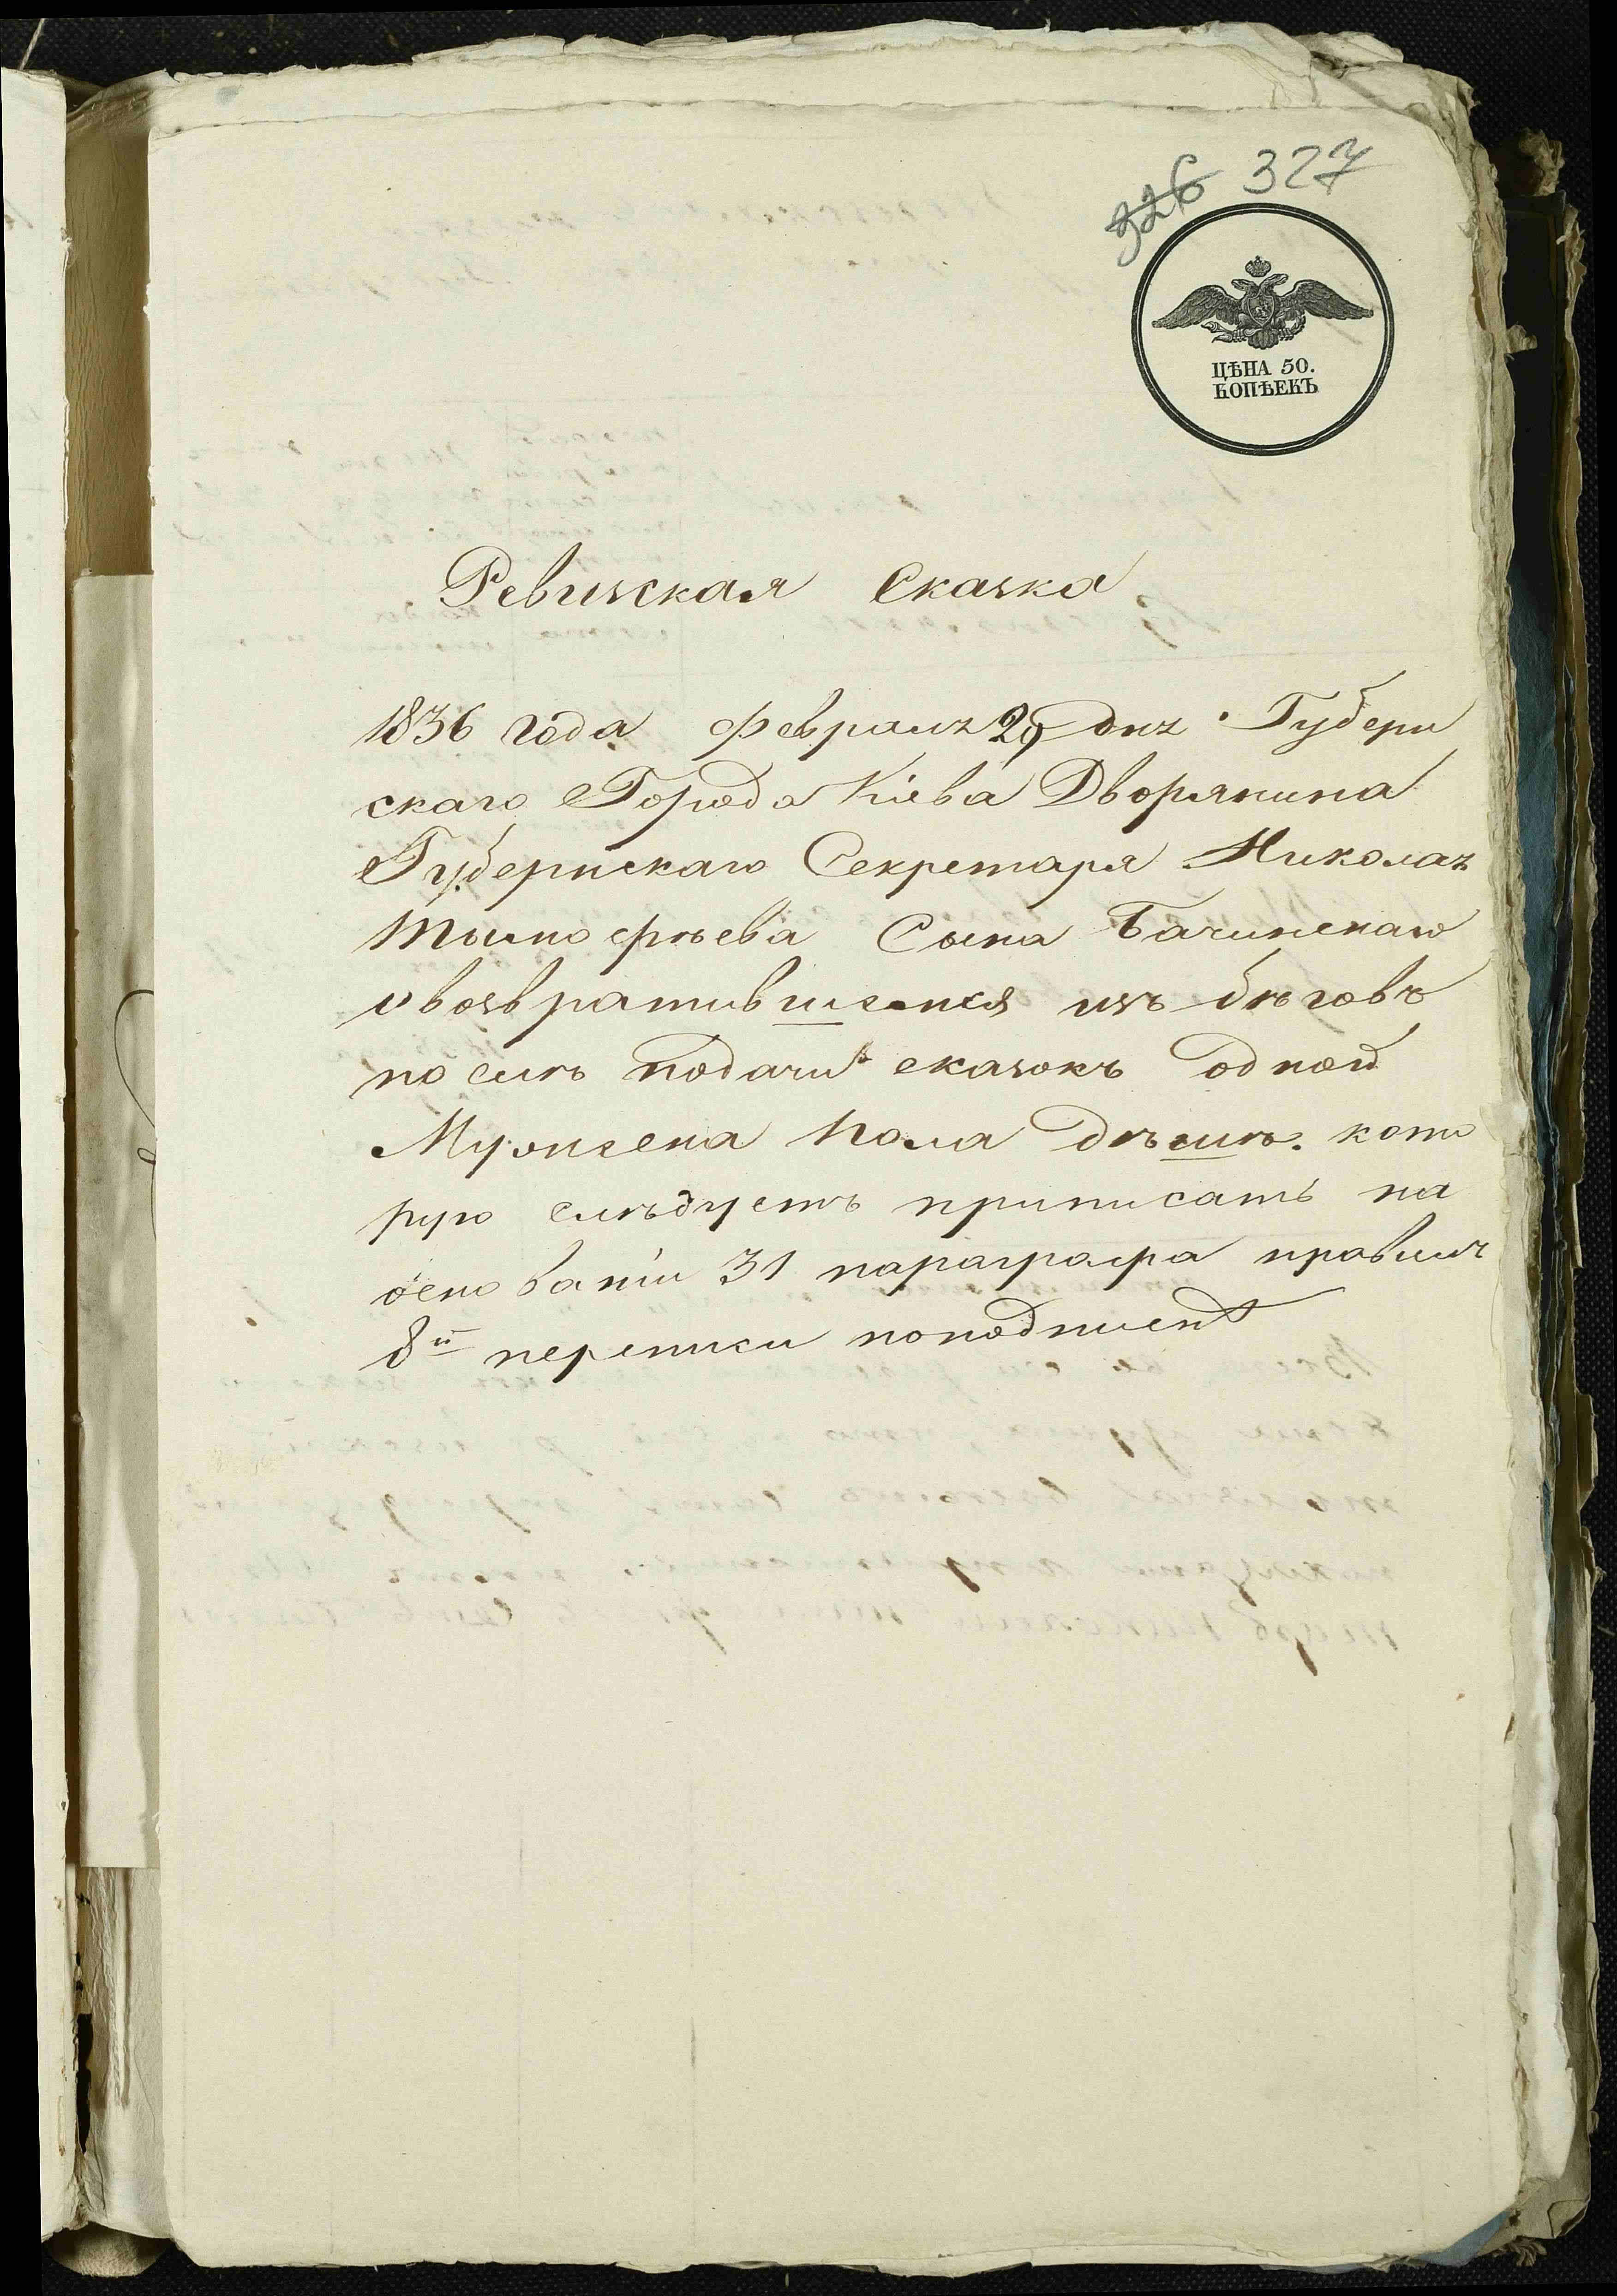 326 327
ЦѢНА 50.
КОПѢЕКЪ
Ревизская Сказка
1836 года февраля 29 дня Губерн
скаго Города Кіева Дворянина
Губернскаго Секретаря Николая
Тимофѣева Сына Бачинскаго
о возвратившейся изъ бѣговъ
послѣ подачи сказокъ одной
Мужеска пола душѣ. кото
рую слѣдуетъ приписать на
основаніи 31 параграфа правилъ
8й переписи